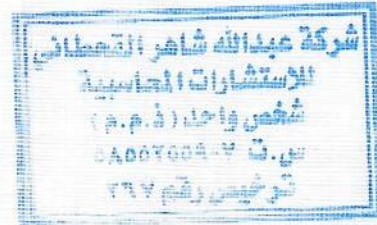 شركة عبدالله شاهر القحطاني
للإستشارات المحاسبية
شخص واحد (ذ.م.م)
س.ت
ترخيص رقم